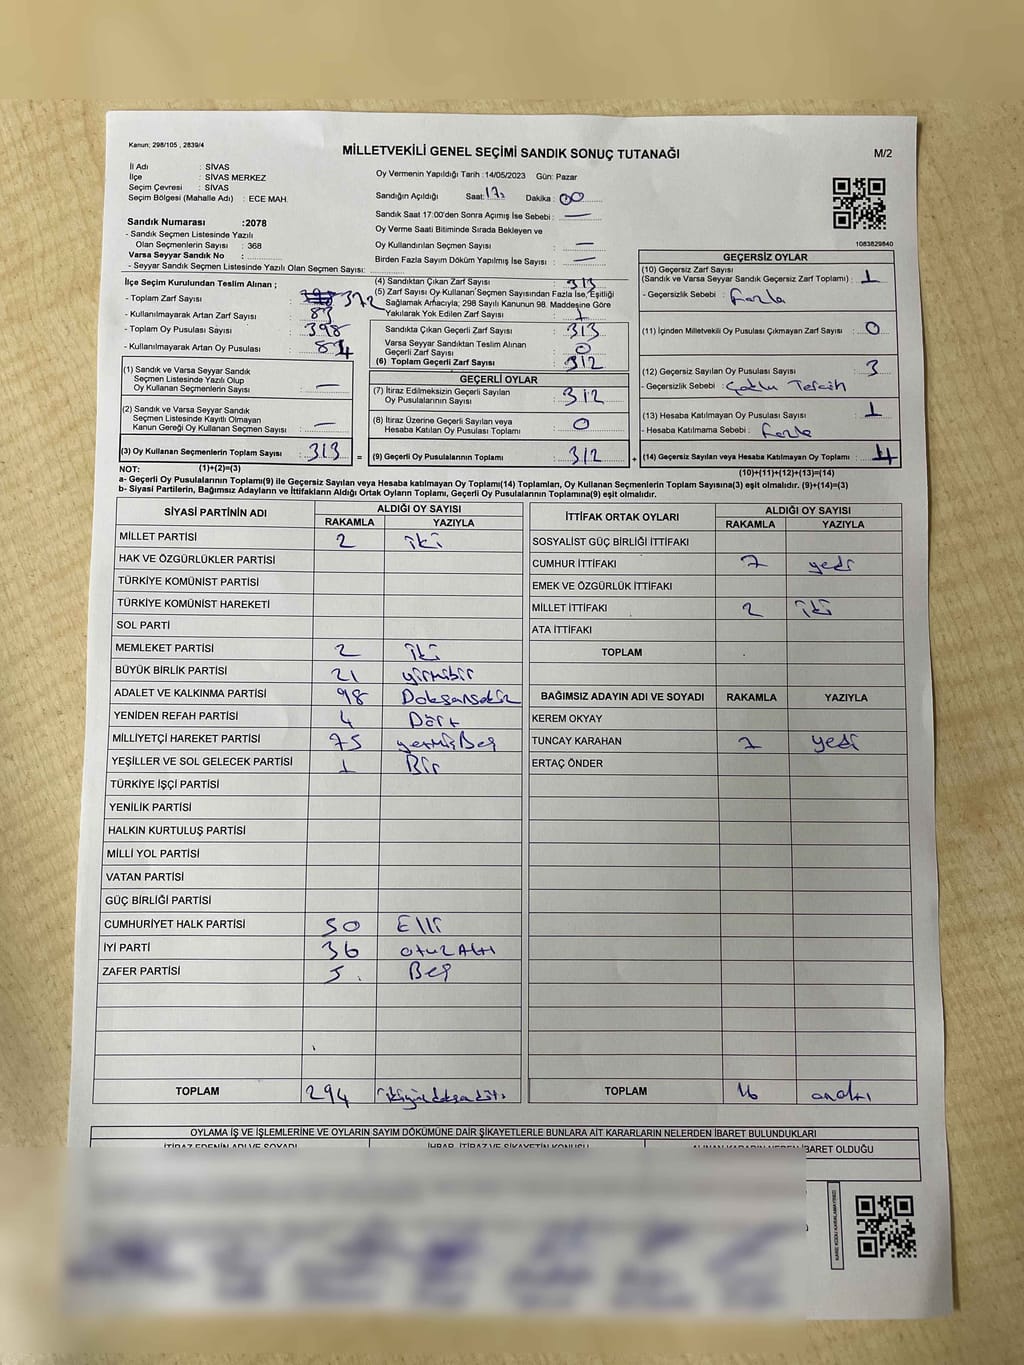 Kanun; 298/105 , 2839/4
MİLLETVEKİLİ GENEL SEÇİMİ SANDIK SONUÇ TUTANAĞI
M/2
İl Adı : SİVAS
İlçe : SİVAS MERKEZ
Seçim Çevresi : SİVAS
Seçim Bölgesi (Mahalle Adı) : ECE MAH.
Sandık Numarası :2078
- Sandık Seçmen Listesinde Yazılı
Olan Seçmenlerin Sayısı : 368
Varsa Seyyar Sandık No :
- Seyyar Sandık Seçmen Listesinde Yazılı Olan Seçmen Sayısı:
Oy Vermenin Yapıldığı Tarih :14/05/2023 Gün: Pazar
Sandığın Açıldığı Saat: 17: Dakika : 00
Sandık Saat 17:00'den Sonra Açımış İse Sebebi : —
Oy Verme Saati Bitiminde Sırada Bekleyen ve
Oy Kullandırılan Seçmen Sayısı —
Birden Fazla Sayım Döküm Yapılmış İse Sayısı : —
1083829840
İlçe Seçim Kurulundan Teslim Alınan ;
- Toplam Zarf Sayısı : 372
- Kullanılmayarak Artan Zarf Sayısı : 83
- Toplam Oy Pusulası Sayısı : 398
- Kullanılmayarak Artan Oy Pusulası : 84
(1) Sandık ve Varsa Seyyar Sandık
Seçmen Listesinde Yazılı Olup
Oy Kullanan Seçmenlerin Sayısı : —
(2) Sandık ve Varsa Seyyar Sandık
Seçmen Listesinde Kayıtlı Olmayan
Kanun Gereği Oy Kullanan Seçmen Sayısı : —
(3) Oy Kullanan Seçmenlerin Toplam Sayısı : 313 =
(1)+(2)=(3)
(4) Sandıktan Çıkan Zarf Sayısı : 313
(5) Zarf Sayısı Oy Kullanan Seçmen Sayısından Fazla İse, Eşitliği
Sağlamak Amacıyla; 298 Sayılı Kanunun 98. Maddesine Göre
Yakılarak Yok Edilen Zarf Sayısı : 1
Sandıkta Çıkan Geçerli Zarf Sayısı : 313
Varsa Seyyar Sandıktan Teslim Alınan
Geçerli Zarf Sayısı : 0
(6) Toplam Geçerli Zarf Sayısı : 312
GEÇERLİ OYLAR
(7) İtiraz Edilmeksizin Geçerli Sayılan
Oy Pusulalarının Sayısı : 312
(8) İtiraz Üzerine Geçerli Sayılan veya
Hesaba Katılan Oy Pusulası Toplamı : 0
(9) Geçerli Oy Pusulalarının Toplamı : 312 +
GEÇERSİZ OYLAR
(10) Geçersiz Zarf Sayısı
(Sandık ve Varsa Seyyar Sandık Geçersiz Zarf Toplamı) : 1
- Geçersizlik Sebebi : fazla
(11) İçinden Milletvekili Oy Pusulası Çıkmayan Zarf Sayısı : 0
(12) Geçersiz Sayılan Oy Pusulası Sayısı : 3
- Geçersizlik Sebebi : Çoklu Tercih
(13) Hesaba Katılmayan Oy Pusulası Sayısı : 1
- Hesaba Katılmama Sebebi : fazla
(14) Geçersiz Sayılan veya Hesaba Katılmayan Oy Toplamı : 4
(10)+(11)+(12)+(13)=(14)
NOT:
a- Geçerli Oy Pusulalarının Toplamı(9) ile Geçersiz Sayılan veya Hesaba Katılmayan Oy Toplamı(14) Toplamları, Oy Kullanan Seçmenlerin Toplam Sayısına(3) eşit olmalıdır. (9)+(14)=(3)
b- Siyasi Partilerin, Bağımsız Adayların ve İttifakların Aldığı Ortak Oyların Toplamı, Geçerli Oy Pusulalarının Toplamına(9) eşit olmalıdır.
SİYASİ PARTİNİN ADI ALDIĞI OY SAYISI
RAKAMLA YAZIYLA
MİLLET PARTİSİ 2 iki
HAK VE ÖZGÜRLÜKLER PARTİSİ
TÜRKİYE KOMÜNİST PARTİSİ
TÜRKİYE KOMÜNİST HAREKETİ
SOL PARTİ
MEMLEKET PARTİSİ 2 iki
BÜYÜK BİRLİK PARTİSİ 21 yirmibir
ADALET VE KALKINMA PARTİSİ 98 Doksansekiz
YENİDEN REFAH PARTİSİ 4 Dört
MİLLİYETÇİ HAREKET PARTİSİ 75 yetmişBeş
YEŞİLLER VE SOL GELECEK PARTİSİ 1 Bir
TÜRKİYE İŞÇİ PARTİSİ
YENİLİK PARTİSİ
HALKIN KURTULUŞ PARTİSİ
MİLLİ YOL PARTİSİ
VATAN PARTİSİ
GÜÇ BİRLİĞİ PARTİSİ
CUMHURİYET HALK PARTİSİ 50 Elli
İYİ PARTİ 36 otuzAltı
ZAFER PARTİSİ 5. Beş
TOPLAM 294 ikiyüzdoksandört
İTTİFAK ORTAK OYLARI ALDIĞI OY SAYISI
RAKAMLA YAZIYLA
SOSYALİST GÜÇ BİRLİĞİ İTTİFAKI
CUMHUR İTTİFAKI 7 yedi
EMEK VE ÖZGÜRLÜK İTTİFAKI
MİLLET İTTİFAKI 2 iki
ATA İTTİFAKI
TOPLAM
BAĞIMSIZ ADAYIN ADI VE SOYADI RAKAMLA YAZIYLA
KEREM OKYAY
TUNCAY KARAHAN 7 yedi
ERTAÇ ÖNDER
TOPLAM 16 onaltı
OYLAMA İŞ VE İŞLEMLERİNE VE OYLARIN SAYIM DÖKÜMÜNE DAİR ŞİKAYETLERLE BUNLARA AİT KARARLARIN NELERDEN İBARET BULUNDUKLARI
İTİRAZ EDENİN ADI VE SOYADI İHBAR, İTİRAZ VE ŞİKAYETİN KONUSU ALINAN KARARIN NEDEN İBARET OLDUĞU
KARE KODU KARALAMAYINIZ!